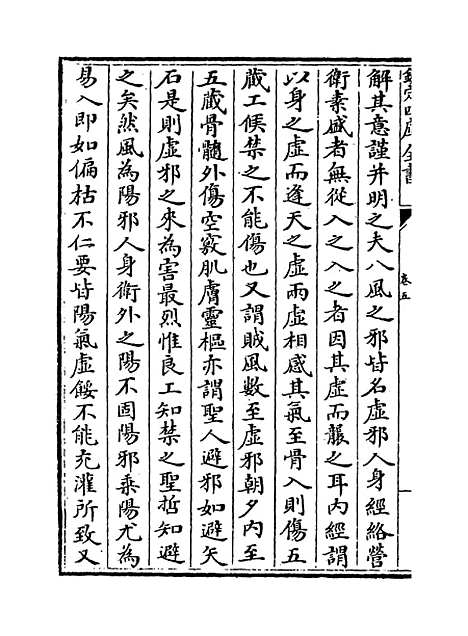 欽定四庫全書
卷五
解其意謹并明之夫八風之邪皆名虛邪人身經絡營
衛素盛者無從入之入之者因其虛而襲之耳内經謂
以身之虛而逢天之虛兩虛相感其氣至骨入則傷五
藏工候禁之不能傷也又謂賊風數至虛邪朝夕内至
五藏骨髓外傷空竅肌膚靈樞亦謂聖人避邪如避矢
石是則虛邪之來為害最烈惟良工知禁之聖哲知避
之矣然風為陽邪人身衛外之陽不固陽邪乘陽尤為
易入即如偏枯不仁要皆陽氣虛餒不能充灌所致又